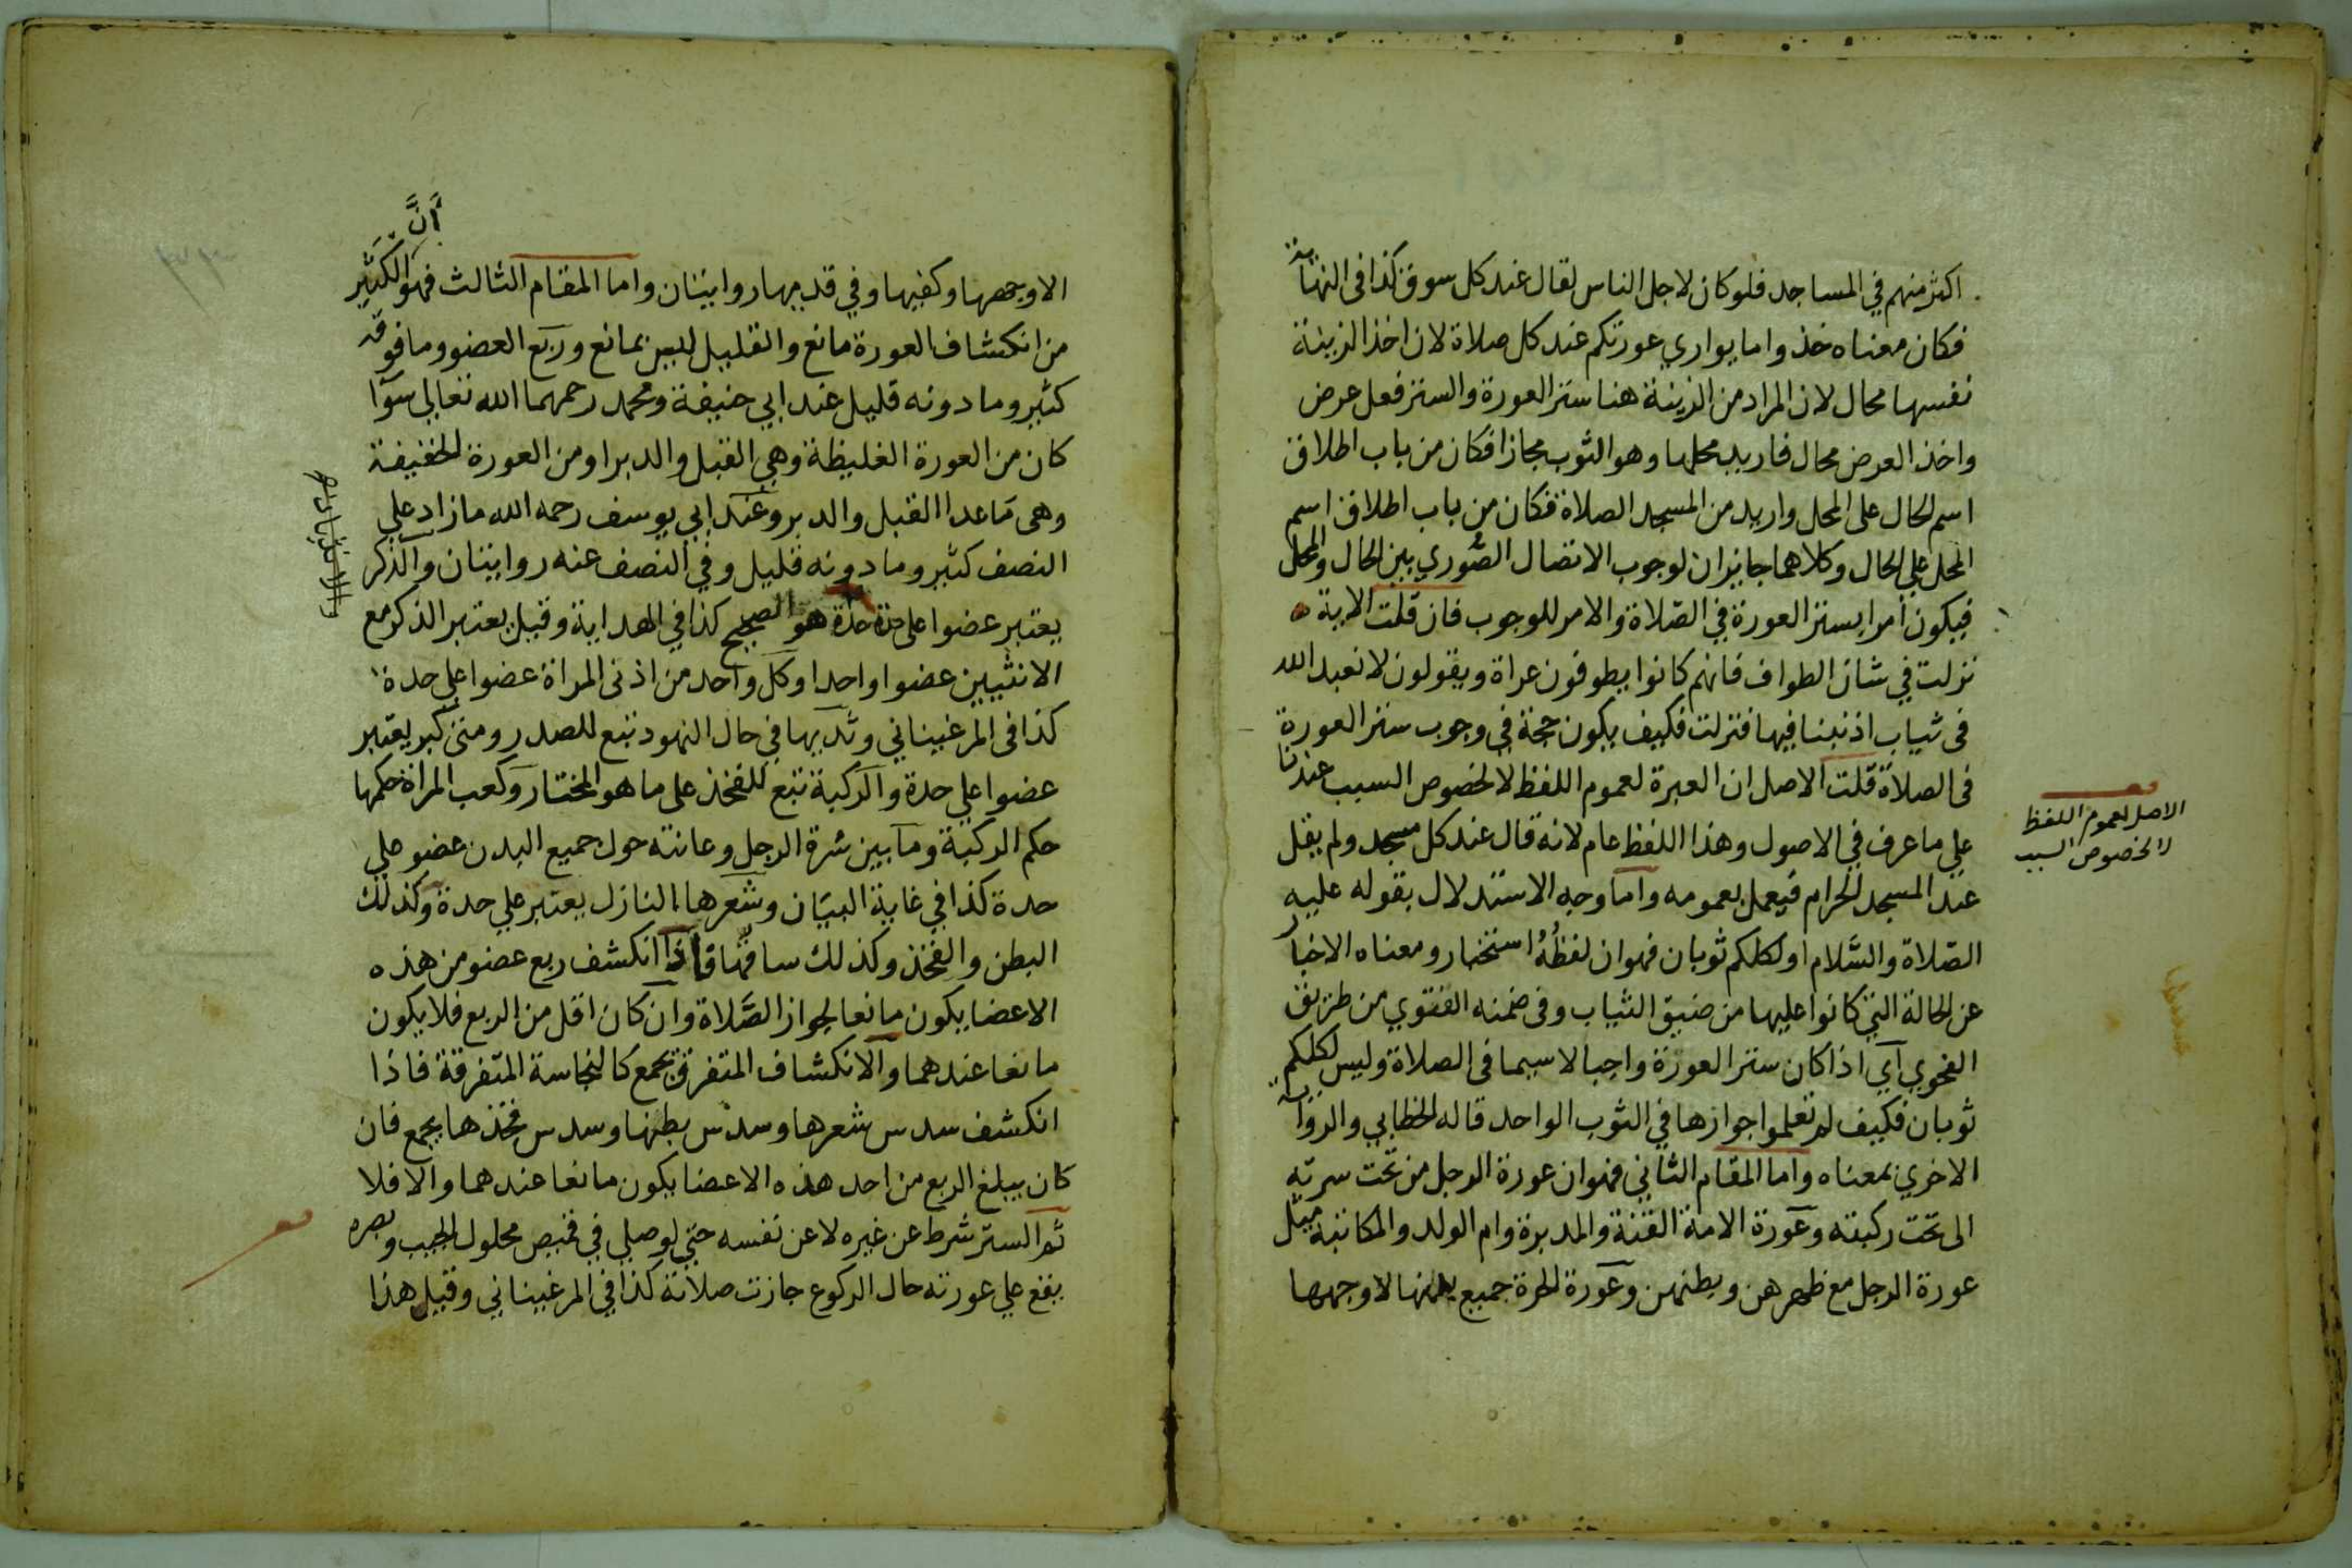 اكثر منهم في المساجد فلو كان لاجل الناس لقال عند كل سوق كذا فى النهاية
فكان معناه خذوا ما يواري عورتكم عند كل صلاة لان اخذ الزينة
نفسها محال لان المراد من الزينة هنا ستر العورة والستر فعل عرض
واخذ العرض محال فاريد محلها وهو الثوب مجازا فكان من باب اطلاق
اسم الحال على المحل واريد من المسجد الصلاة فكان من باب اطلاق اسم
المحل علي الحال وكلاهما جايزان لوجوب الاتصال الصُّوري بين الحال والمحل
فيكون أمرا بستر العورة في الصّلاة والامر للوجوب فان قلت الاية
نزلت في شان الطواف فانهم كانوا يطوفون عراة ويقولون لا نعبد الله
فى ثياب اذنبنا فيها فنزلت فكيف يكون حجة في وجوب ستر العورة
فى الصلاة قلت الاصل ان العبرة لعموم اللفظ لا لخصوص السبب عندنا
علي ما عرف في الاصول وهذا اللفظ عام لانه قال عند كل مسجد ولم يقل
عند المسجد الحرام فيعمل بعمومه واما وجه الاستدلال بقوله عليه
الصّلاة والسَّلام اولكلكم ثوبان فهو ان لفظُهُ استخبار ومعناه الاخبار
عن الحالة التي كانوا عليها من ضيق الثياب وفى ضمنه الفتوي من طريق
الفحوي آي اذا كان ستر العورة واجبا لا سيما فى الصلاة وليس لكلكم
ثوبان فكيف لم تعلموا جوازها في الثوب الواحد قاله الخطابي والرواية
الاخري بمعناه واما المقام الثاني فهو ان عورة الرجل من تحت سرته
الى تحت ركبته وعورة الامة القنة والمدبرة وام الولد والمكاتبة مثل
عورة الرجل مع ظهرهن وبطنهن وعورة الحرة جميع بدنها الا وجهها
الاصل لعموم اللفظ
لا لخصوص السبب
أنَّ
الا وجهها وكفيها وفي قدميها روايتان واما المقام الثالث فهو الكثير
من انكشاف العورة مانع والقليل ليس بمانع وربع العضو وما فوقه
كثير وما دونه قليل عند ابي حنيفة ومحمد رحمهما الله تعالى سوآ
كان من العورة الغليظة وهي القبل والدبر او من العورة الخفيفة
وهى مَا عدا القبل والدبر وعند ابي يوسف رحمه الله ما زاد علي
النصف كثير وما دونه قليل وفي النصف عنه روايتان والذكر
يعتبر عضوا على حدة حدة هو الصحيح كذا في الهداية وقيل يعتبر الذكر مع
الانثيين عضوا واحدا وكل واحد من اذنى المراة عضوا علي حدة
كذا فى المرغيناني وثديها في حال النهود تبع للصدر ومتى كبر يعتبر
عضوا علي حدة والركبة تبع للفخذ على ما هو المختار وكعب المراة حكمها
حكم الركبة وما بين سُرة الرجل وعانته حول جميع البدن عضو علي
حدة كذا في غاية البيَان وشعرها النازل يعتبر علي حدة وكذلك
البطن والفخذ وكذلك ساقها فاذا انكشف ربع عضو من هذه
الاعضا يكون مانعا لجواز الصَّلاة وان كان اقل من الربع فلا يكون
مانعا عندهما والانكشاف المتفرق يجمع كالنجاسة المتفرقة فاذا
انكشف سدس شعرها وسدس بطنها وسدس فخذها يجمع فان
كان يبلغ الربع من احد هذه الاعضا يكون مانعا عندهما والا فلا
ثم الستر شرط عن غيره لا عن نفسه حتي لو صلي في قميص محلول الجيب وبصره
يقع علي عورته حال الركوع جازت صلاته كذا في المرغيناني وقيل هذا